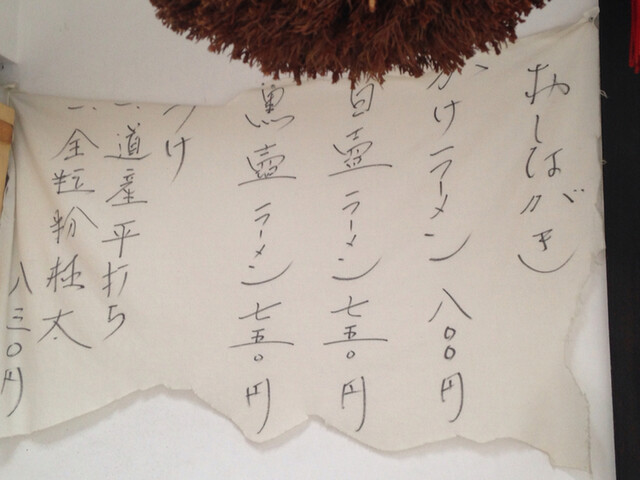 おしながき
かけラーメン 八〇〇円
白壺ラーメン 七五〇円
黒壺ラーメン 七五〇円
つけ
一、道産平打ち
一、全粒粉極太
八三〇円